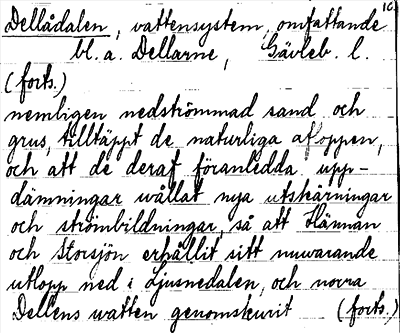 10.
Dellådalen, vattensystem, omfattande
bl. a. Dellarne, Gävleb. l.
(forts.)
nemligen nedströmmad sand och
grus, tilltäppt de naturliga afloppen,
och att de deraf föranledda upp-
dämningar wållat nya utskärningar
och strömbildningar, så att Hännan
och Storsjön erhållit sitt nuwarande
utlopp ned i Ljusnedalen, och norra
Dellens watten genomskurit (forts.)